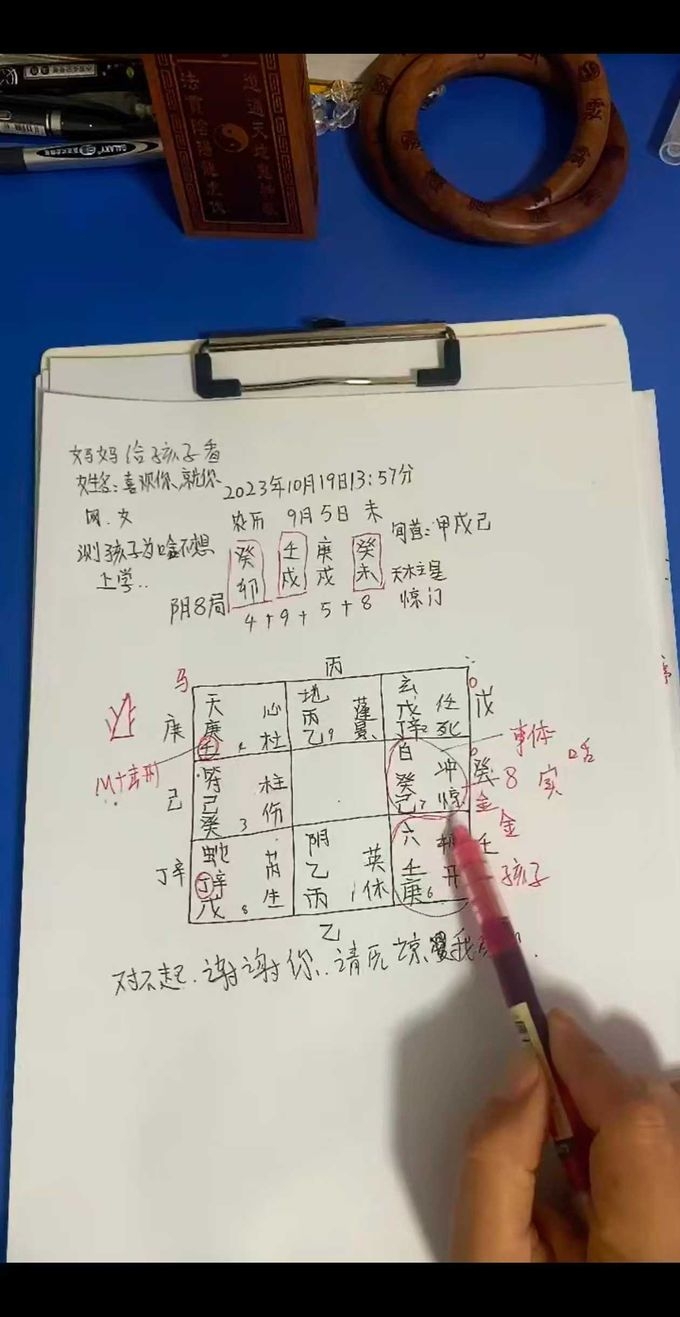 GALAXY
妈妈给孩子看
姓名:喜欢你、就你
网.女
测孩子为啥不想
上学..
2023年10月19日13:57分
农历 9月5日 未
癸 壬 庚 癸
卯 戌 戌 未
旬首:甲戌己
天柱星
惊门
阴8局
4+9+5+8
马
丙
庚
天 心
庚
壬 4 杜
地 蓬
丙
乙 9 景
玄 任
戊
辛 2 死
戊
己
符 柱
己
癸 3 伤
白 冲
癸
己 7 惊
癸
8
金
金
事体
实
丁辛
蛇 芮
丁辛
戊 8 生
阴
乙 英
丙 1 休
六
壬
庚 6 开
壬
孩子
乙
对不起.谢谢你..请原谅我